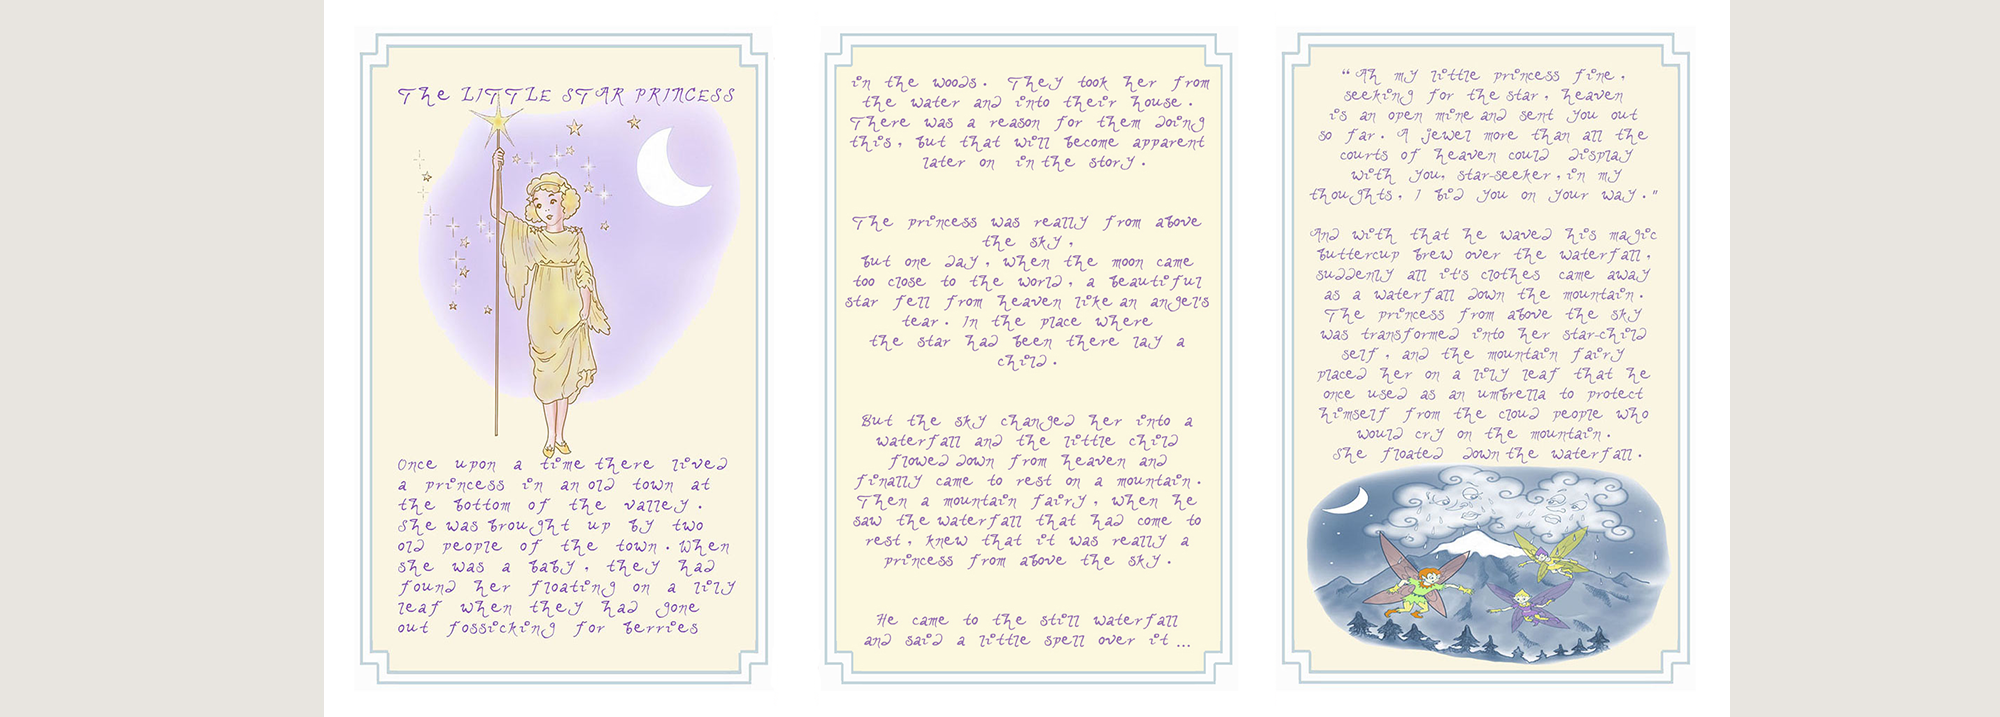 The LITTLE STAR PRINCESS
Once upon a time there lived
a princess in an old town at
the bottom of the valley.
She was brought up by two
old people of the town. When
she was a baby, they had
found her floating on a lily
leaf when they had gone
out fossicking for berries
in the woods. They took her from
the water and into their house.
There was a reason for them doing
this, but that will become apparent
later on in the story.
The princess was really from above
the sky,
but one day, when the moon came
too close to the world, a beautiful
star fell from heaven like an angel's
tear. In the place where
the star had been there lay a
child.
But the sky changed her into a
waterfall and the little child
flowed down from heaven and
finally came to rest on a mountain.
Then a mountain fairy, when he
saw the waterfall that had come to
rest, knew that it was really a
princess from above the sky.
He came to the still waterfall
and said a little spell over it ...
"Ah my little princess fine,
seeking for the star, heaven
is an open mine and sent you out
so far. A jewel more than all the
courts of heaven could display
with you, star-seeker, in my
thoughts, I bid you on your way."
And with that he waved his magic
buttercup brew over the waterfall,
suddenly all it's clothes came away
as a waterfall down the mountain.
The princess from above the sky
was transformed into her star-child
self, and the mountain fairy
placed her on a lily leaf that he
once used as an umbrella to protect
himself from the cloud people who
would cry on the mountain.
She floated down the waterfall.